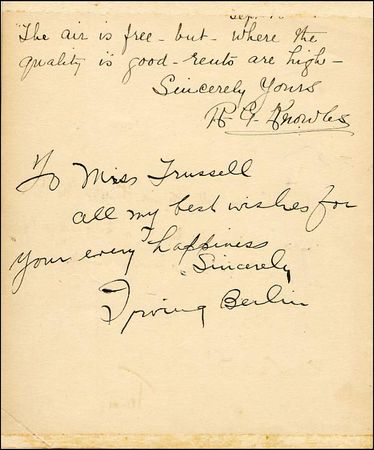 Sep. 18
"The air is free - but - where the
quality is good - rents are high -
Sincerely Yours
R G Knowles
To Miss Trussell
all my best wishes for
your every happiness
Sincerely
Irving Berlin